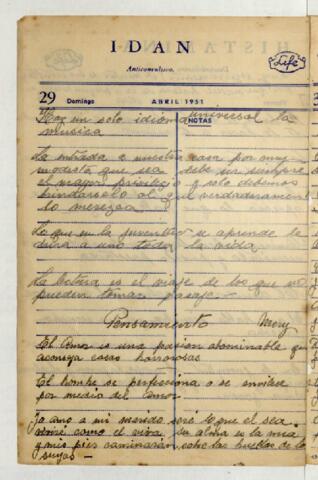 IDAN
Anticonvulsivo.
Life
29 Domingo ABRIL 1951
NOTAS
Hay un solo idioma universal la
musica
La entrada a nuestra casa por muy
modesta que sea debe ser siempre
el mayor privilegio y solo debemos
brindarselo al que verdaderamente
lo merezca
Lo que en la juventud se aprende le
dura a uno toda la vida
La lectura es el viaje de los que no
pueden tomar pasaje
Pensamiento Mery
El Amor es una pasion abominable que
aconseja cosas horrorosas
El hombre se perfecciona o se
por medio del amor
Yo amo a mi marido seré lo que el sea
viviré como el viva su alma es la mia
y mis pies caminarán sobre las huellas de los
suyos —